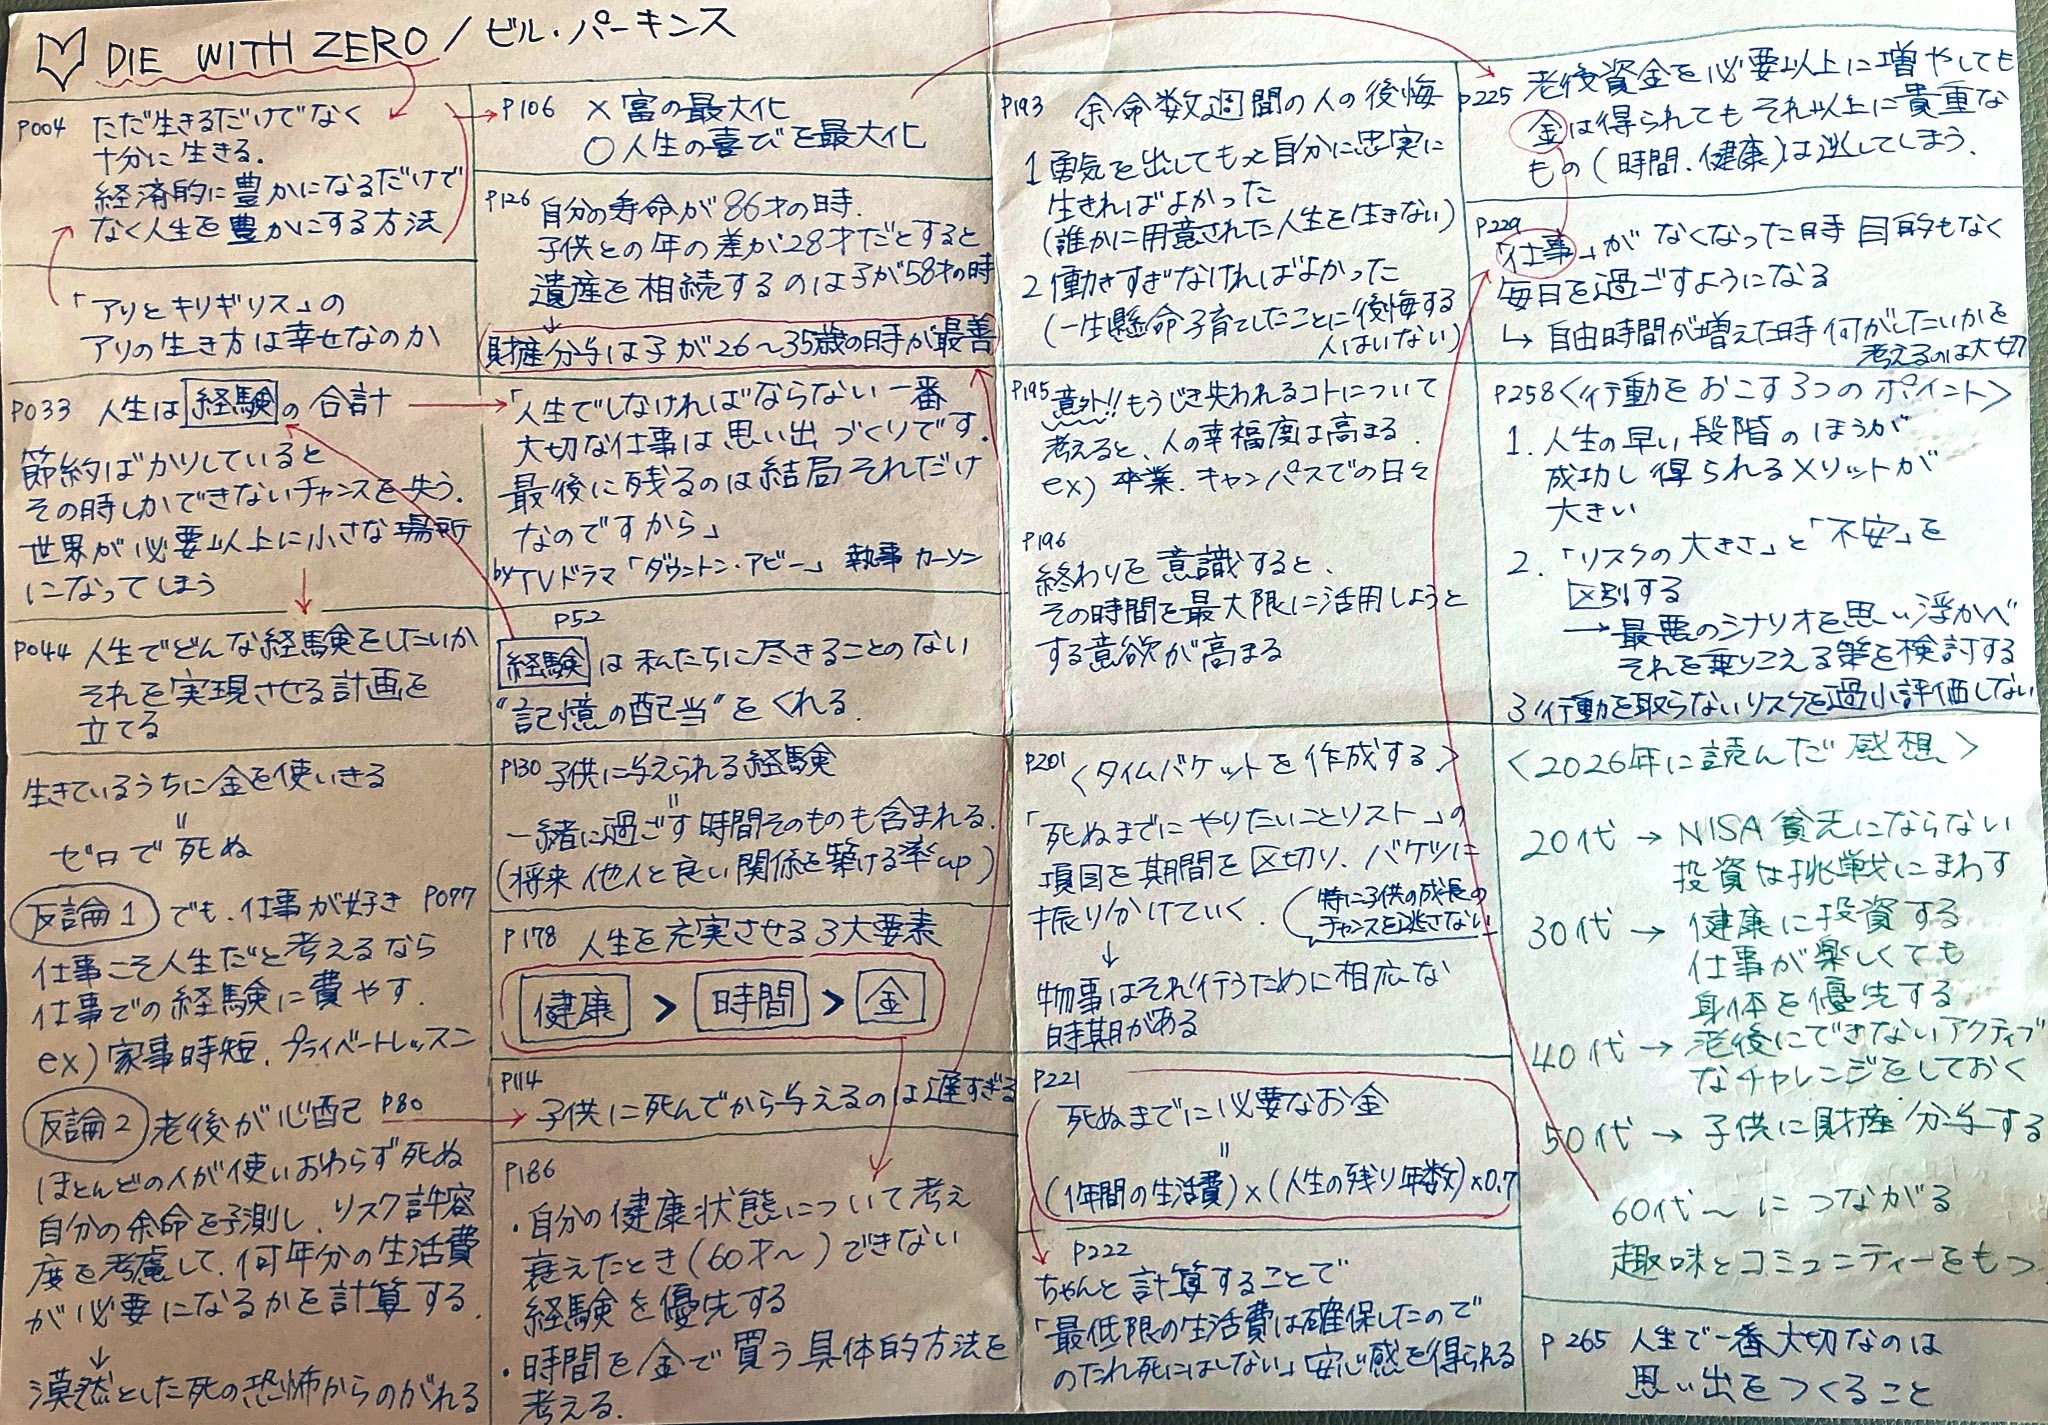 DIE WITH ZERO / ビル・パーキンス
P004 ただ生きるだけでなく
十分に生きる.
経済的に豊かになるだけで
なく人生を豊かにする方法
「アリとキリギリス」の
アリの生き方は幸せなのか
P033 人生は 経験 の合計
節約ばかりしていると
その時しかできないチャンスを失う.
世界が必要以上に小さな場所
になってしまう
P044 人生でどんな経験をしたいか
それを実現させる計画を
立てる
生きているうちに金を使いきる
〃
ゼロで死ぬ
反論1 でも、仕事が好き P077
仕事こそ人生だと考えるなら
仕事での経験に費やす.
ex) 家事時短、プライベートレッスン
反論2 老後が心配 P80
ほとんどの人が使いおわらず死ぬ
自分の余命を予測し、リスク許容
度を考慮して、何年分の生活費
が必要になるかを計算する.
↓
漠然とした死の恐怖からのがれる
P106 × 富の最大化
○ 人生の喜びを最大化
P126 自分の寿命が86才の時.
子供との年の差が28才だとすると
遺産を相続するのは子が58才の時
↓
財産分与は子が26〜35歳の時が最善
「人生でしなければならない一番
大切な仕事は思い出づくりです.
最後に残るのは結局それだけ
なのですから」
by TVドラマ「ダウントン・アビー」執事 カーソン
P52
経験 は私たちに尽きることのない
"記憶の配当"をくれる.
P130 子供に与えられる経験
〃
一緒に過ごす時間そのものも含まれる.
(将来 他人と良い関係を築ける率up)
P178 人生を充実させる3大要素
健康 > 時間 > 金
P114
子供に死んでから与えるのは遅すぎる
P186
・自分の健康状態について考え
衰えたとき(60才〜)できない
経験を優先する
・時間を金で買う具体的方法を
考える.
P193 余命数週間の人の後悔
1 勇気を出してもっと自分に忠実に
生きればよかった
(誰かに用意された人生を生きない)
2 働きすぎなければよかった
(一生懸命子育てしたことに後悔する
人はいない)
P195 意外!!もうじき失われるコトについて
考えると、人の幸福度は高まる.
ex) 卒業、キャンパスでの日々
P196
終わりを意識すると、
その時間を最大限に活用しようと
する意欲が高まる
P201 〈タイムバケットを作成する〉
「死ぬまでにやりたいことリスト」の
項目を期間を区切り、バケツに
振り分けていく.
(特に子供の成長の
チャンスを逃さない
↓
物事はそれ行うために相応な
時期がある
P221
死ぬまでに必要なお金
〃
(1年間の生活費)×(人生の残り年数)×0.7
P222
ちゃんと計算することで
「最低限の生活費は確保したので
のたれ死にはしない」安心感を得られる
P225 老後資金を必要以上に増やしても
金は得られてもそれ以上に貴重な
もの(時間、健康)は逃してしまう.
P229
「仕事」がなくなった時 目的もなく
毎日を過ごすようになる
↳ 自由時間が増えた時 何がしたいかを
考えるのは大切
P258〈行動をおこす3つのポイント〉
1. 人生の早い段階のほうが
成功し得られるメリットが
大きい
2. 「リスクの大きさ」と「不安」を
区別する
→ 最悪のシナリオを思い浮かべ
それを乗りこえる策を検討する
3 行動を取らないリスクを過小評価しない
〈2026年に読んだ感想〉
20代 → NISA貧乏にならない
投資は挑戦にまわす
30代 → 健康に投資する
仕事が楽しくても
身体を優先する
40代 → 老後にできないアクティブ
なチャレンジをしておく
50代 → 子供に財産分与する
60代〜につながる
趣味とコミュニティーをもつ
P265 人生で一番大切なのは
思い出をつくること